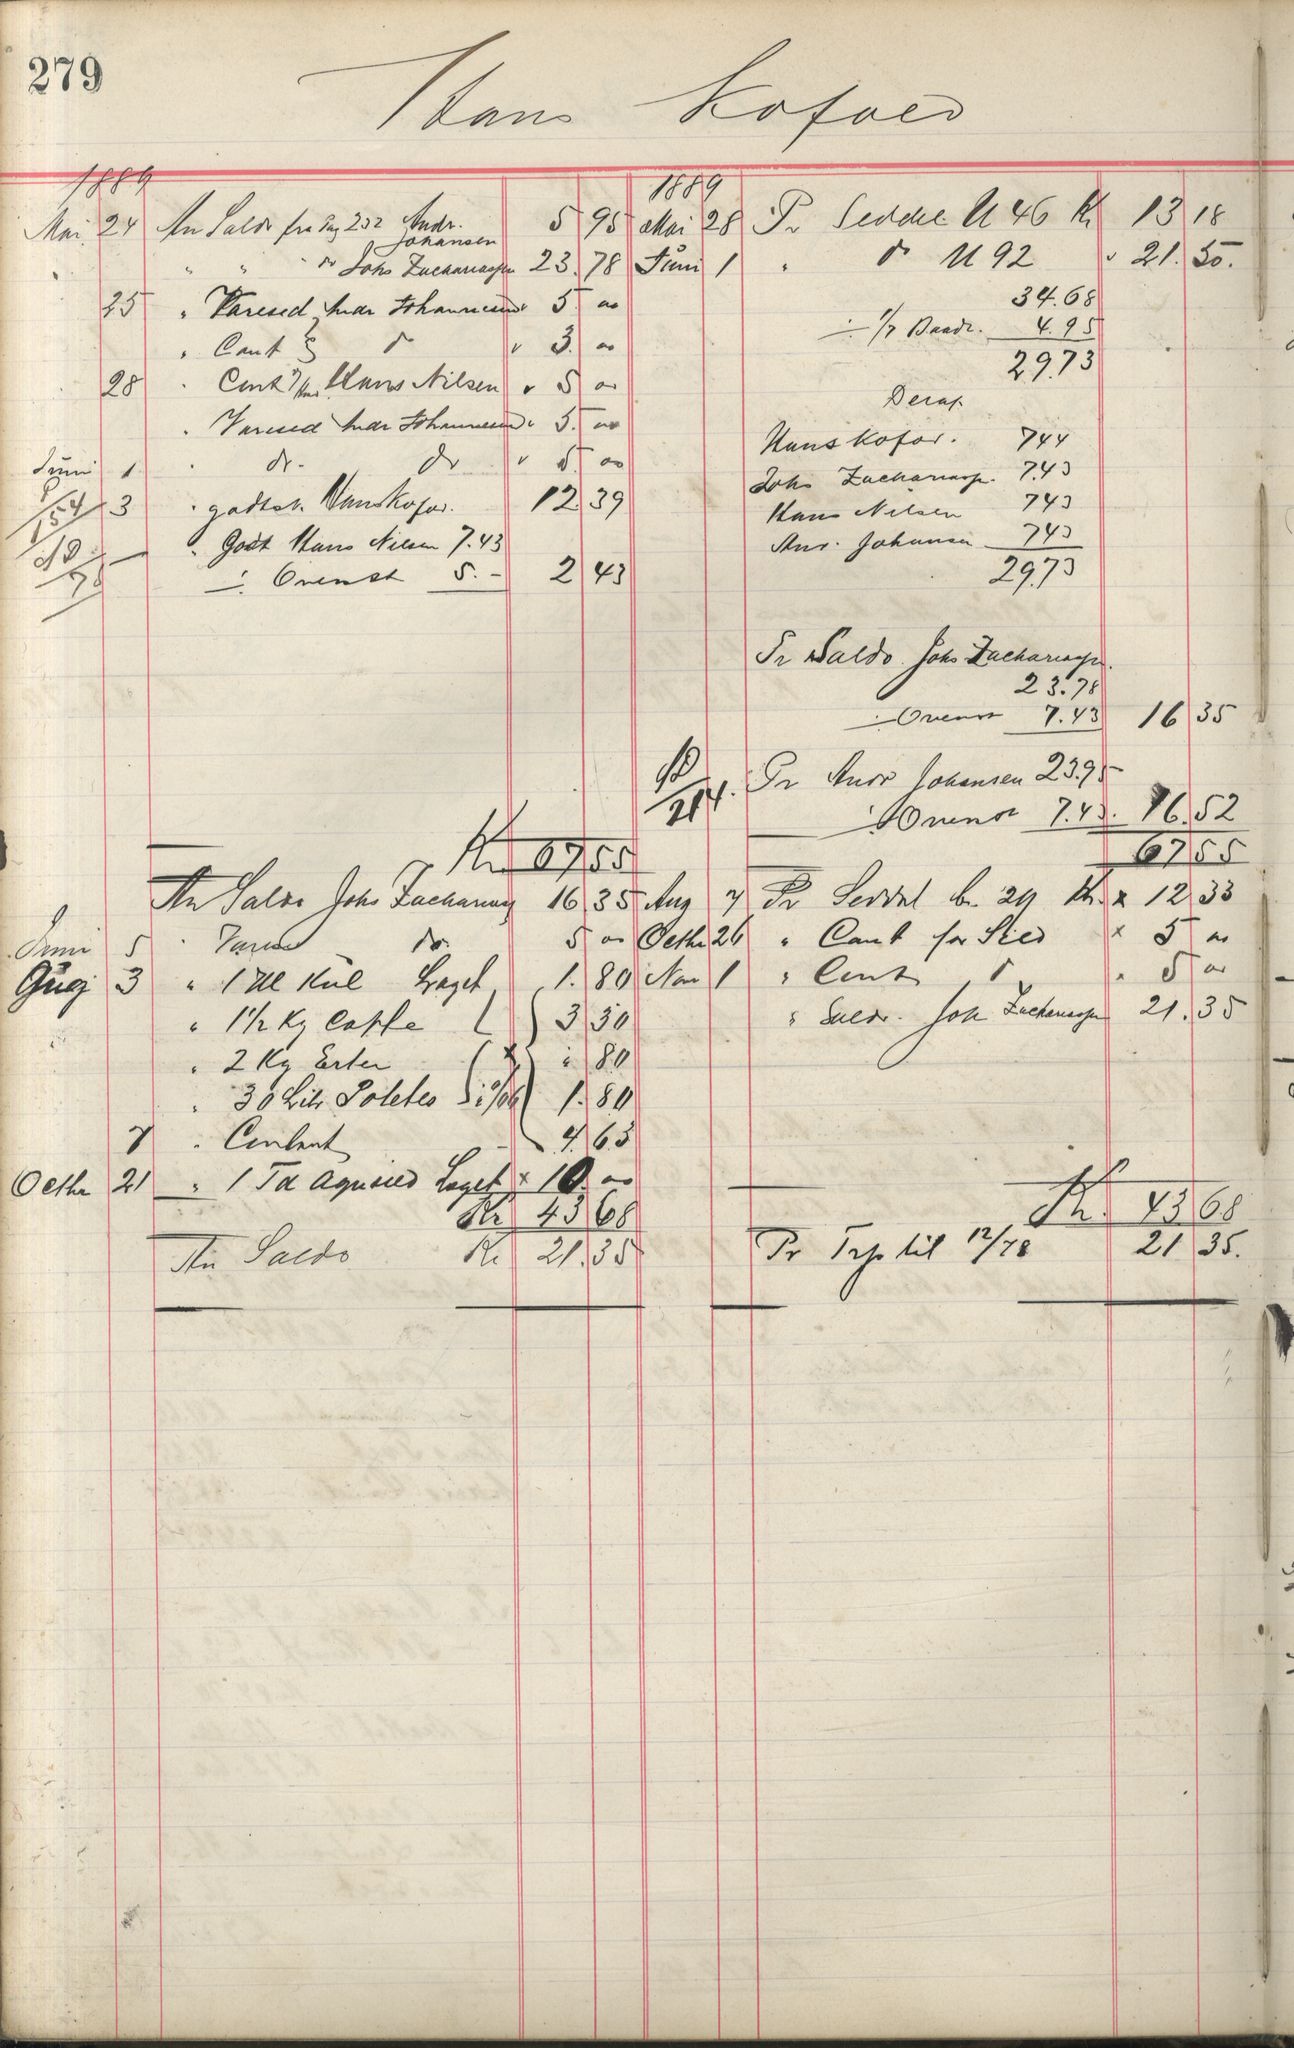 279
Hans Kofoed
1889
Mai 24 An Saldo fra Pag 232 Andr. Johansen 5 95
" " " do Johs Zachariasen 23.78
25 " Varesed Andr Johannesen " 5. 00
" Cont do " 3. 00
28 " Cont Hans Nilsen " 5 00
" Varesed Andr Johannesen " 5. 00
Juni 1 " do. do " 5. 00
154
3 " godtsk. Hans Kofoe. 12 39
" Godt Hans Nilsen 7.43
78
÷ Ovenst 5.- 2 43
Kr 67 55
An Saldo Johs Zachariasen 16 35
Juni 5 " Varesed do. 5 00
Aug 3 " 1 Hl Kul Laget 1. 80
" 1 1/2 Kg Caffe 3 30
" 2 Kg Erter " 80
" 30 Litr Potetes 1. 80
7 " Contant 4. 63
Octbr 21 " 1 Td Agnsild Laget x 10 00
Kr 43 68
An Saldo Kr 21.35
1889
Mai 28 Pr Seddel U 46 Kr 13 18
Juni 1 " do U 92 " 21. 50.
34.68
÷ 1/7 Baadl. 4.95
29.73
Deraf.
Hans Kofoe. 7 44
Johs Zachariasen. 7.43
Hans Nilsen 7 43
Andr. Johansen 7 43
29.73
Pr Saldo Johs Zachariasen.
23.78
÷ Ovenst 7.43 16 35
214. Pr Andr Johansen 23.95
÷ Ovenst 7.43. 16.52
67 55
Aug 7 Pr Seddel 29 Kr. x 12 33
Octbr 26 " Cont for Sild x 5 00
Nov 1 " Cont do " 5 00
" Saldo. Joh Zachariasen 21.35
Kr. 43 68
Pr Trp til 12/78 21 35.